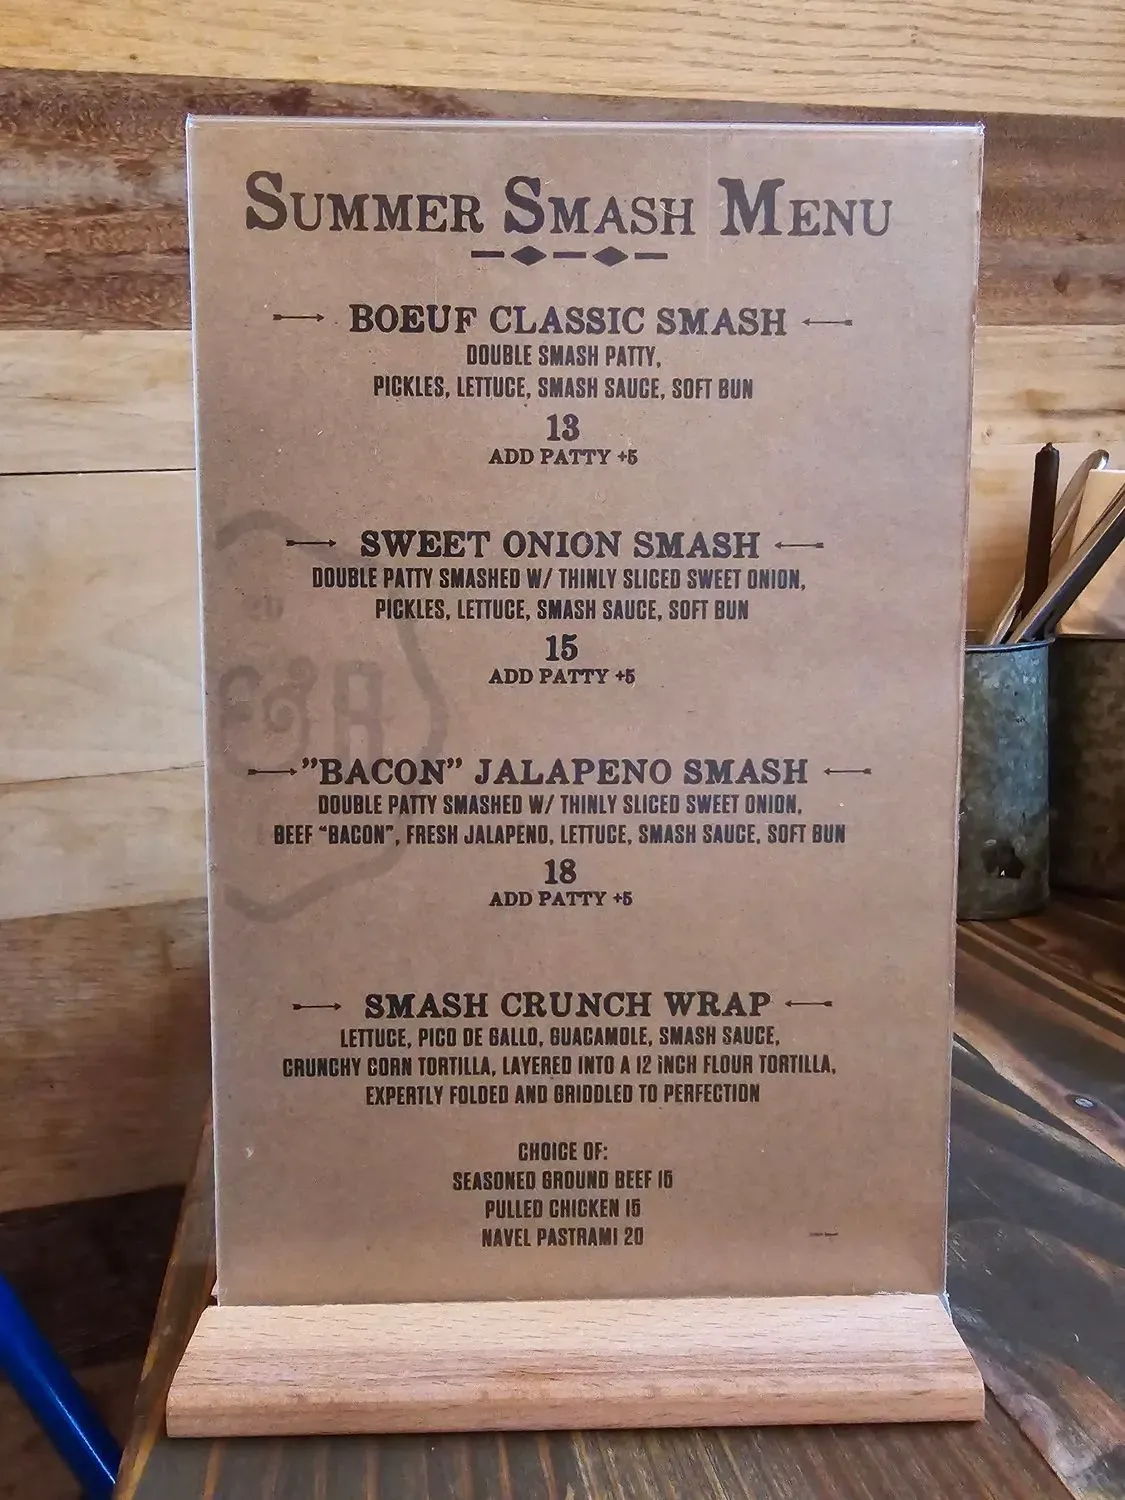 SUMMER SMASH MENU
BOEUF CLASSIC SMASH
DOUBLE SMASH PATTY,
PICKLES, LETTUCE, SMASH SAUCE, SOFT BUN
13
ADD PATTY +5
SWEET ONION SMASH
DOUBLE PATTY SMASHED W/ THINLY SLICED SWEET ONION,
PICKLES, LETTUCE, SMASH SAUCE, SOFT BUN
15
ADD PATTY +5
"BACON" JALAPENO SMASH
DOUBLE PATTY SMASHED W/ THINLY SLICED SWEET ONION,
BEEF "BACON", FRESH JALAPENO, LETTUCE, SMASH SAUCE, SOFT BUN
18
ADD PATTY +5
SMASH CRUNCH WRAP
LETTUCE, PICO DE GALLO, GUACAMOLE, SMASH SAUCE,
CRUNCHY CORN TORTILLA, LAYERED INTO A 12 INCH FLOUR TORTILLA,
EXPERTLY FOLDED AND GRIDDLED TO PERFECTION
CHOICE OF:
SEASONED GROUND BEEF 15
PULLED CHICKEN 15
NAVEL PASTRAMI 20